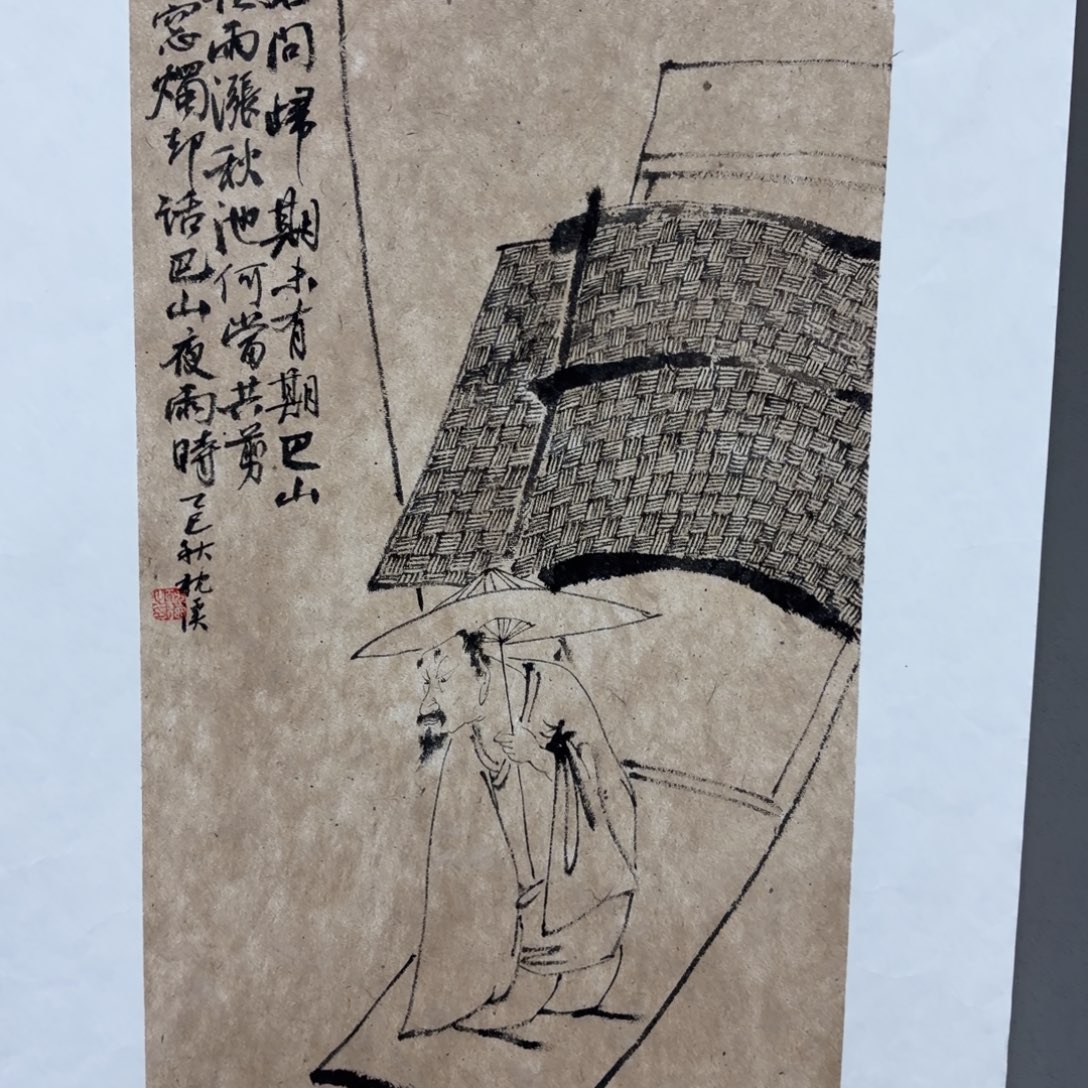 問歸期未有期巴山
雨漲秋池何當共剪
窓燭却話巴山夜雨時
乙巳秋枕溪